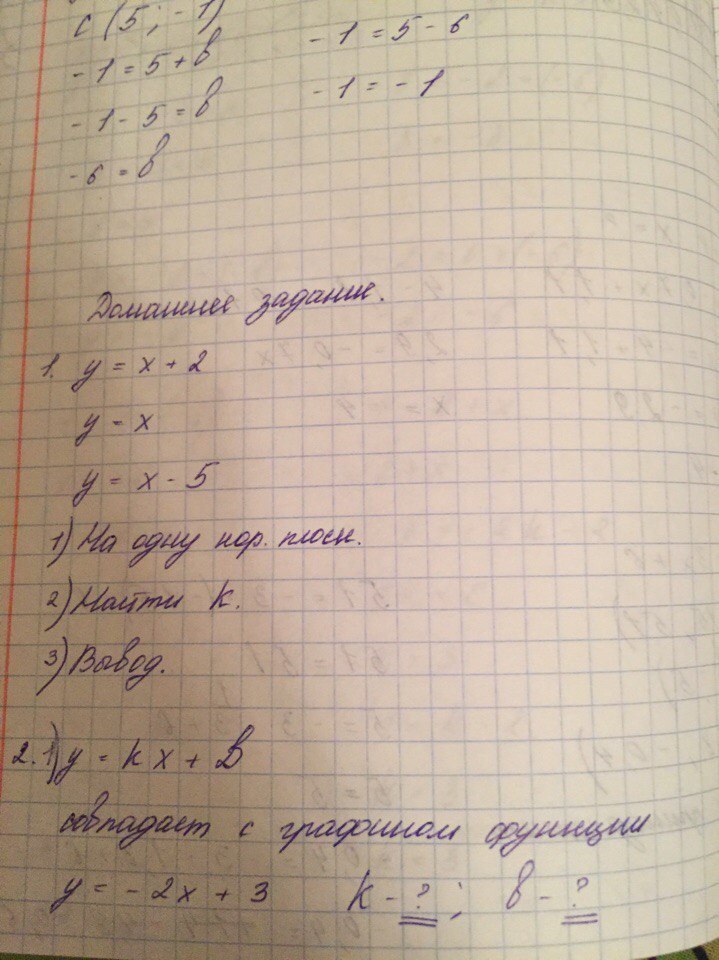 C (5; -1)
-1 = 5 + b
-1 - 5 = b
-6 = b
-1 = 5 - 6
-1 = -1
Домашнее задание.
1. y = x + 2
y = x
y = x - 5
1) На одну кор. плоск.
2) Найти k.
3) Вывод.
2. 1) y = kx + b
совпадает с графиком функции
y = -2x + 3 k - ?; b - ?